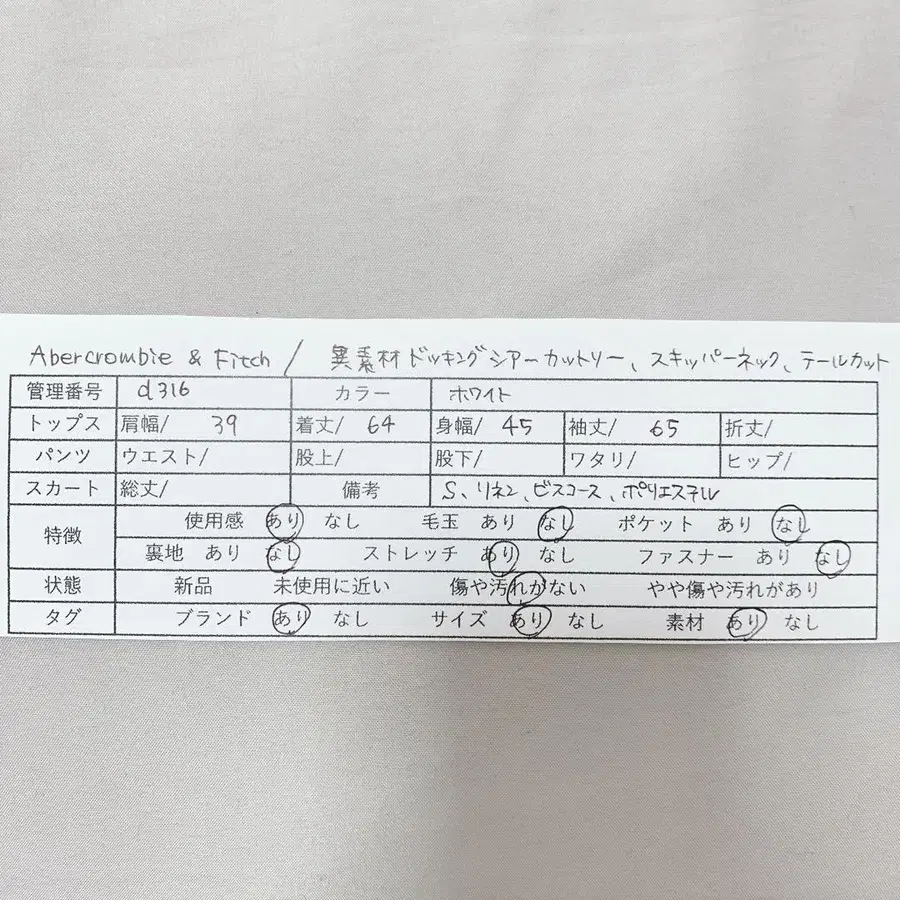 Abercrombie & Fitch / 異素材ドッキングシアーカットソー、スキッパーネック、テールカット
管理番号 d316 カラー ホワイト
トップス 肩幅/ 39 着丈/ 64 身幅/ 45 袖丈/ 65 折丈/
パンツ ウエスト/ 股上/ 股下/ ワタリ/ ヒップ/
スカート 総丈/ 備考 S、リネン、ビスコース、ポリエステル
特徴 使用感 あり なし 毛玉 あり なし ポケット あり なし
裏地 あり なし ストレッチ あり なし ファスナー あり なし
状態 新品 未使用に近い 傷や汚れがない やや傷や汚れがあり
タグ ブランド あり なし サイズ あり なし 素材 あり なし